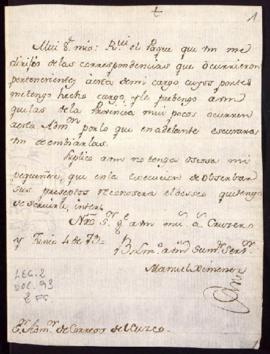 Mui Sr. mio: Rvi el Pague que Vm me
dirijio de las correspondencias que ocurrieron
pertenecientes a esta de mi cargo cuyo porte
me tengo hecho cargo, y le prebengo a Vm
que las de la Parencia mui pocas ocurren
a esta Admon por lo que en adelante escusara
Vm de embiarlas.
Suplico a Vm no tenga osiosa mi
pequeñes, que en la execucion de obserbar
sus preseptos reconosera el deseo que tengo
de servirle, interin
Nro. Sr. gue a Vm ms. as. Cruzero
y Junio 4 de 79
B. L. mo. a Vm su mr. Servr.
Manuel Ximenez
LEG. 2
DOC. 93
Sr. Admor. de Correos del Cuzco.